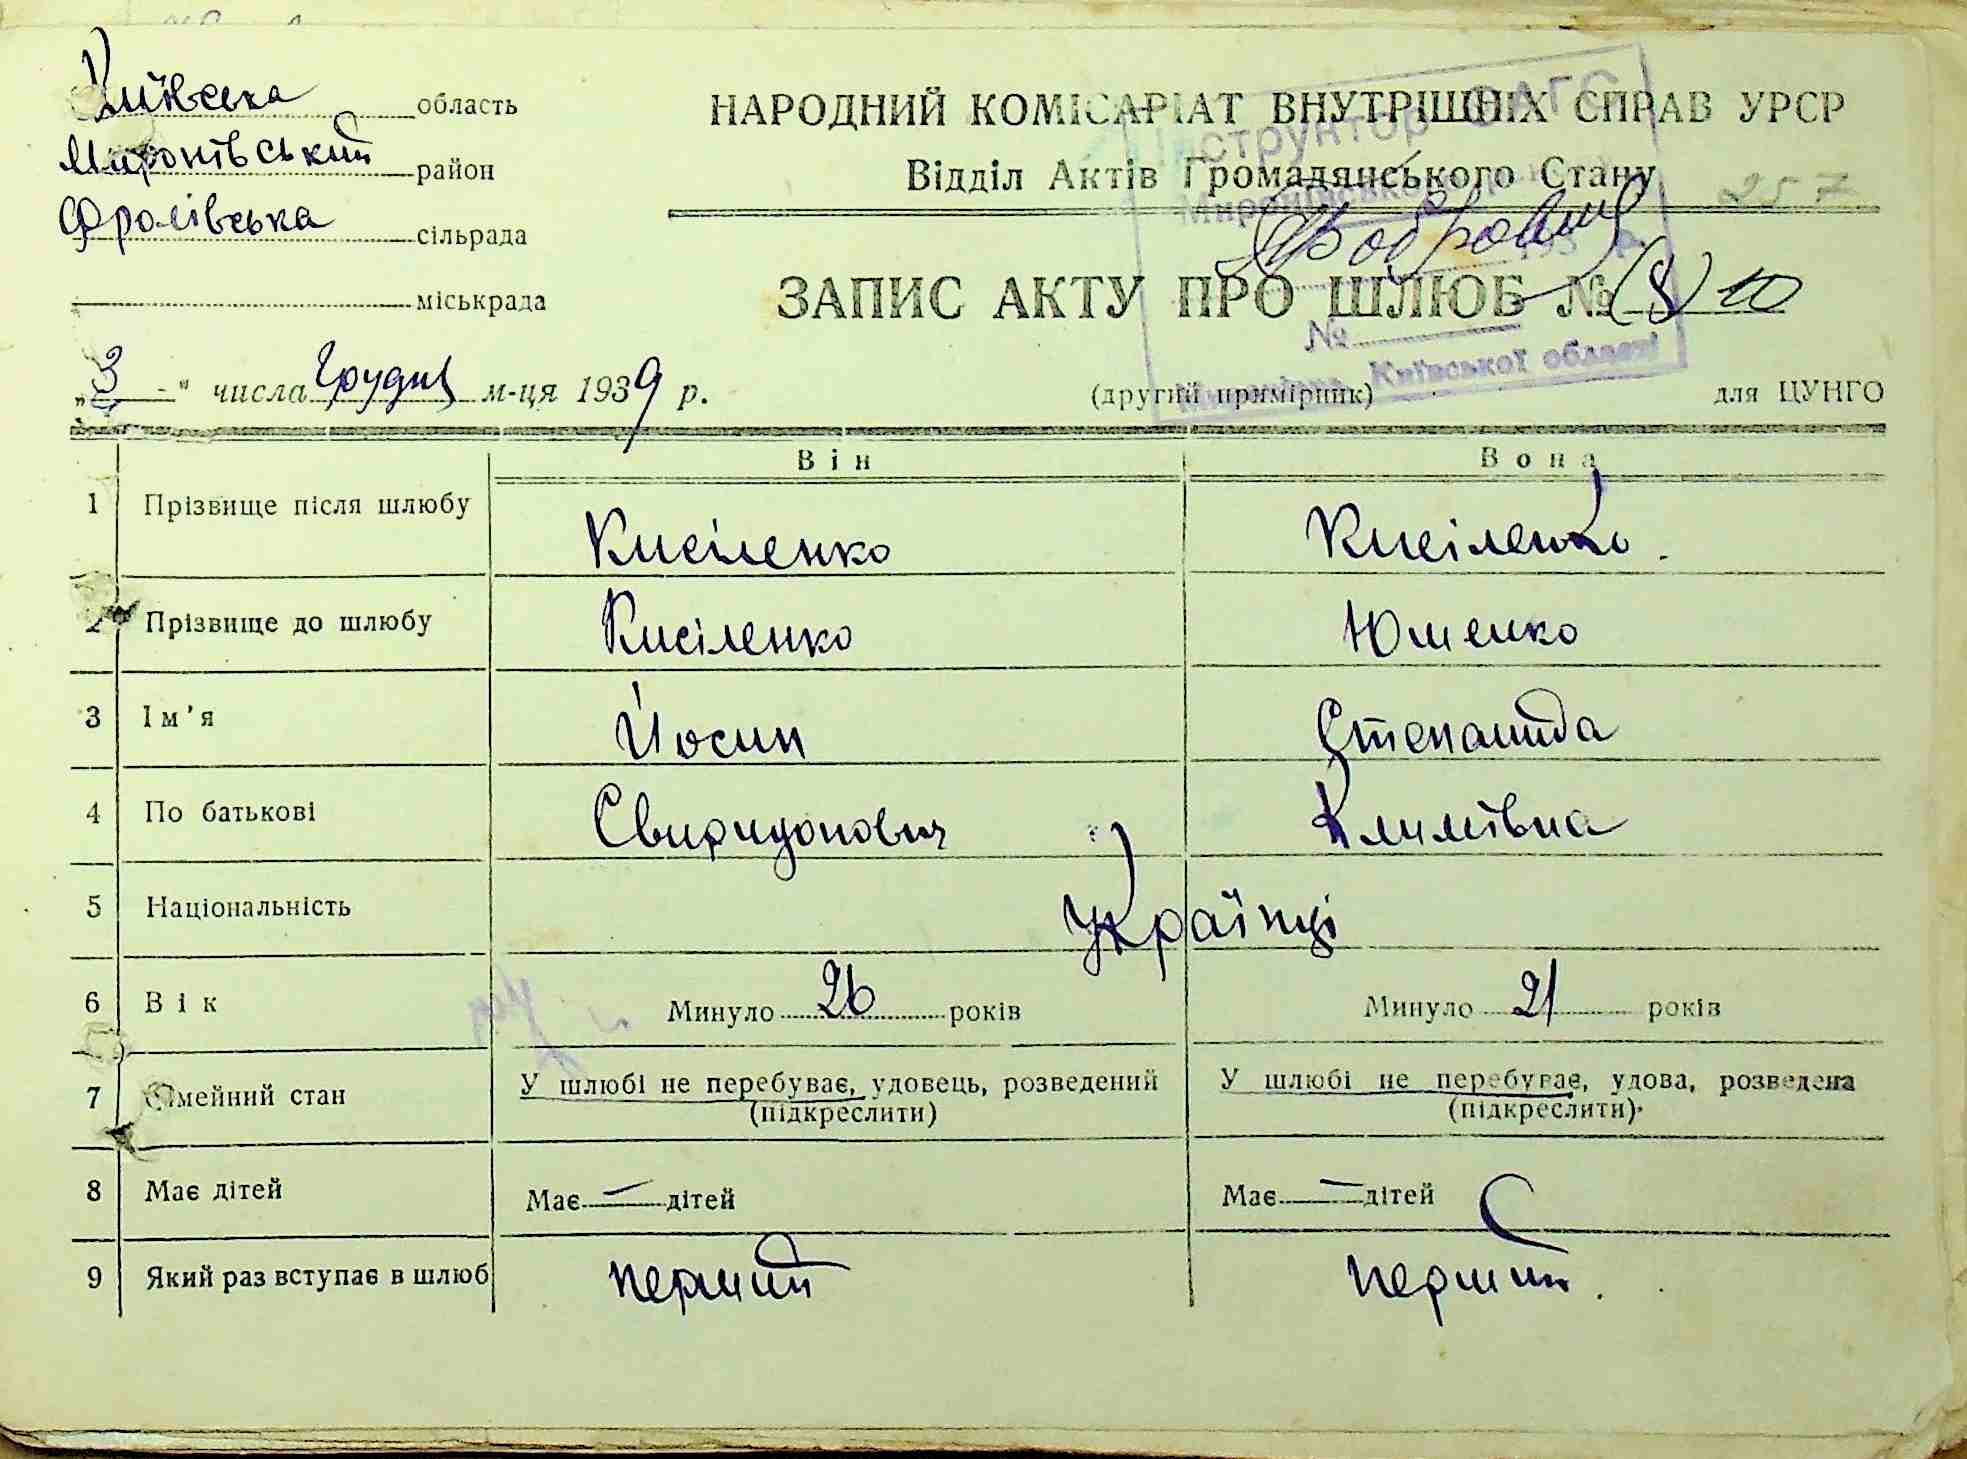 Київська область
Миронівський район
Фролівська сільрада
міськрада
НАРОДНИЙ КОМІСАРІАТ ВНУТРІШНІХ СПРАВ УРСР
Відділ Актів Громадянського Стану
257
Інструктор ФАГС
ЗАПИС АКТУ ПРО ШЛЮБ № (8) 10
№
Київської області
„3" числа Грудня м-ця 1939 р.
(другий примірник) для ЦУНГО
Він Вона
1 Прізвище після шлюбу Кисіленко Кисіленко.
2 Прізвище до шлюбу Кисіленко Юшенко
3 Ім'я Йосип Степанида
4 По батькові Свиридонович Климівна
5 Національність Українці
6 Вік Минуло 26 років Минуло 21 років
7 Сімейний стан У шлюбі не перебуває, удовець, розведений У шлюбі не перебуває, удова, розведена
(підкреслити) (підкреслити)
8 Має дітей Має — дітей Має — дітей
9 Який раз вступає в шлюб перший перший.